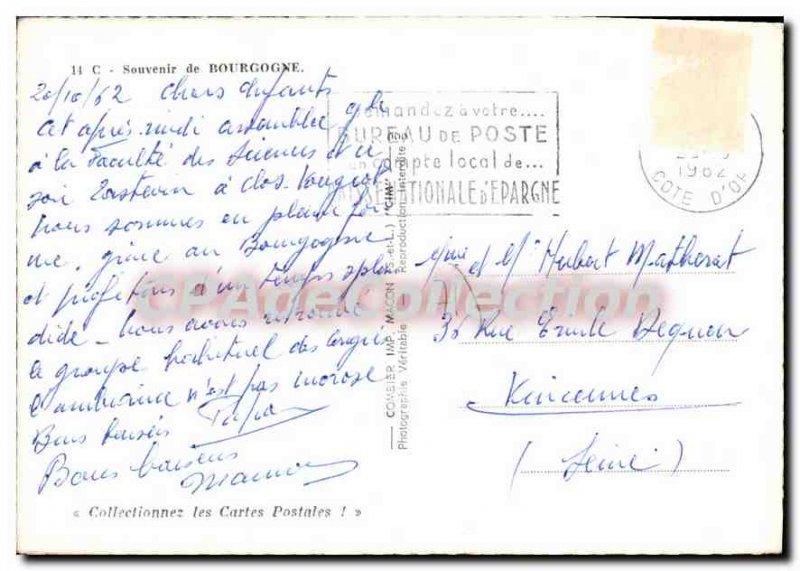 14 C - Souvenir de BOURGOGNE.
20/10/62 Chers Enfants
Cet après-midi assemblée gle
à la Faculté des Sciences et ce
soir Tastevin à Clos-Vougeot
Nous sommes en pleine for
me, grâce au Bourgogne
et profitons d'un temps splen
dide - Nous avons retrouvé
le groupe habituel des congrès
l'ambiance n'est pas morose
Bons baisers Papa
Bons baisers
Maman
« Collectionnez les Cartes Postales ! »
COMBIER IMP. MACON (S.-et-L.) "CIM"
Photographie Véritable Reproduction Interdite
Demandez à votre....
BUREAU DE POSTE
un compte local de...
NATIONALE D'EPARGNE
1962
COTE D'OR
Mme et Mr Hubert Matherat
30 Rue Emile Dequen
Vincennes
(Seine)
CPAgeCollection